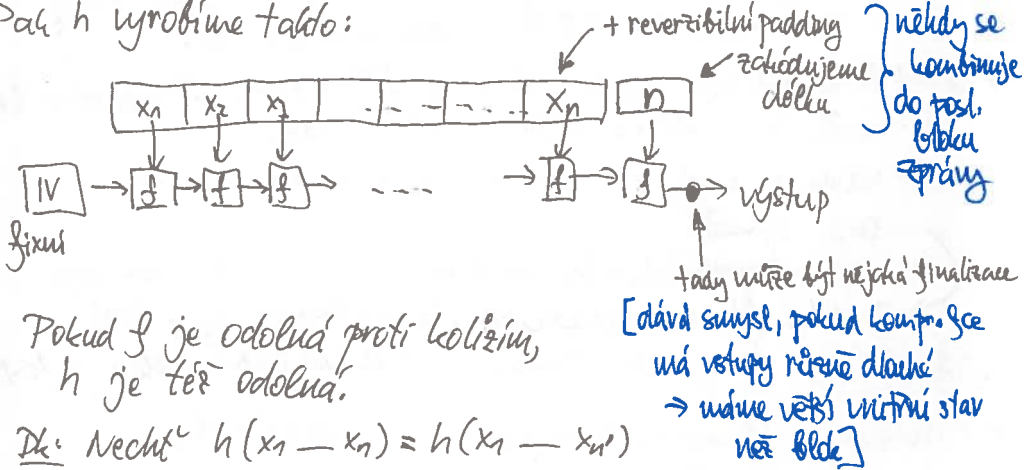 Pak h vyrobíme takto:
+ reverzibilní padding
zakódujeme
délku
někdy se
kombinuje
do posl.
bloku
zprávy
x₁ x₂ x₃ - - - - - - xₙ n
IV → f → f → f → - - - - → f → f → výstup
fixní
tady může být nějaká finalizace
[dává smysl, pokud kompr. fce
má vstupy různě dlouhé
→ máme větší vnitřní stav
než blok]
Pokud f je odolná proti kolizím,
h je též odolná.
Dk: Nechť h(x₁ — xₙ) = h(x₁ — xₙ')